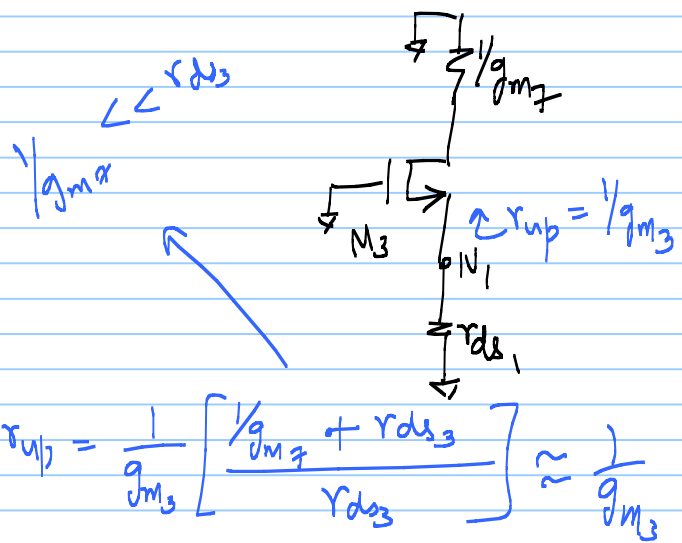 1/gm7
rds3
<<
1/gmx
rup = 1/gm3
M3
N1
rds1
rup = 1/gm3 [ (1/gm7 + rds3) / rds3 ] ≈ 1/gm3